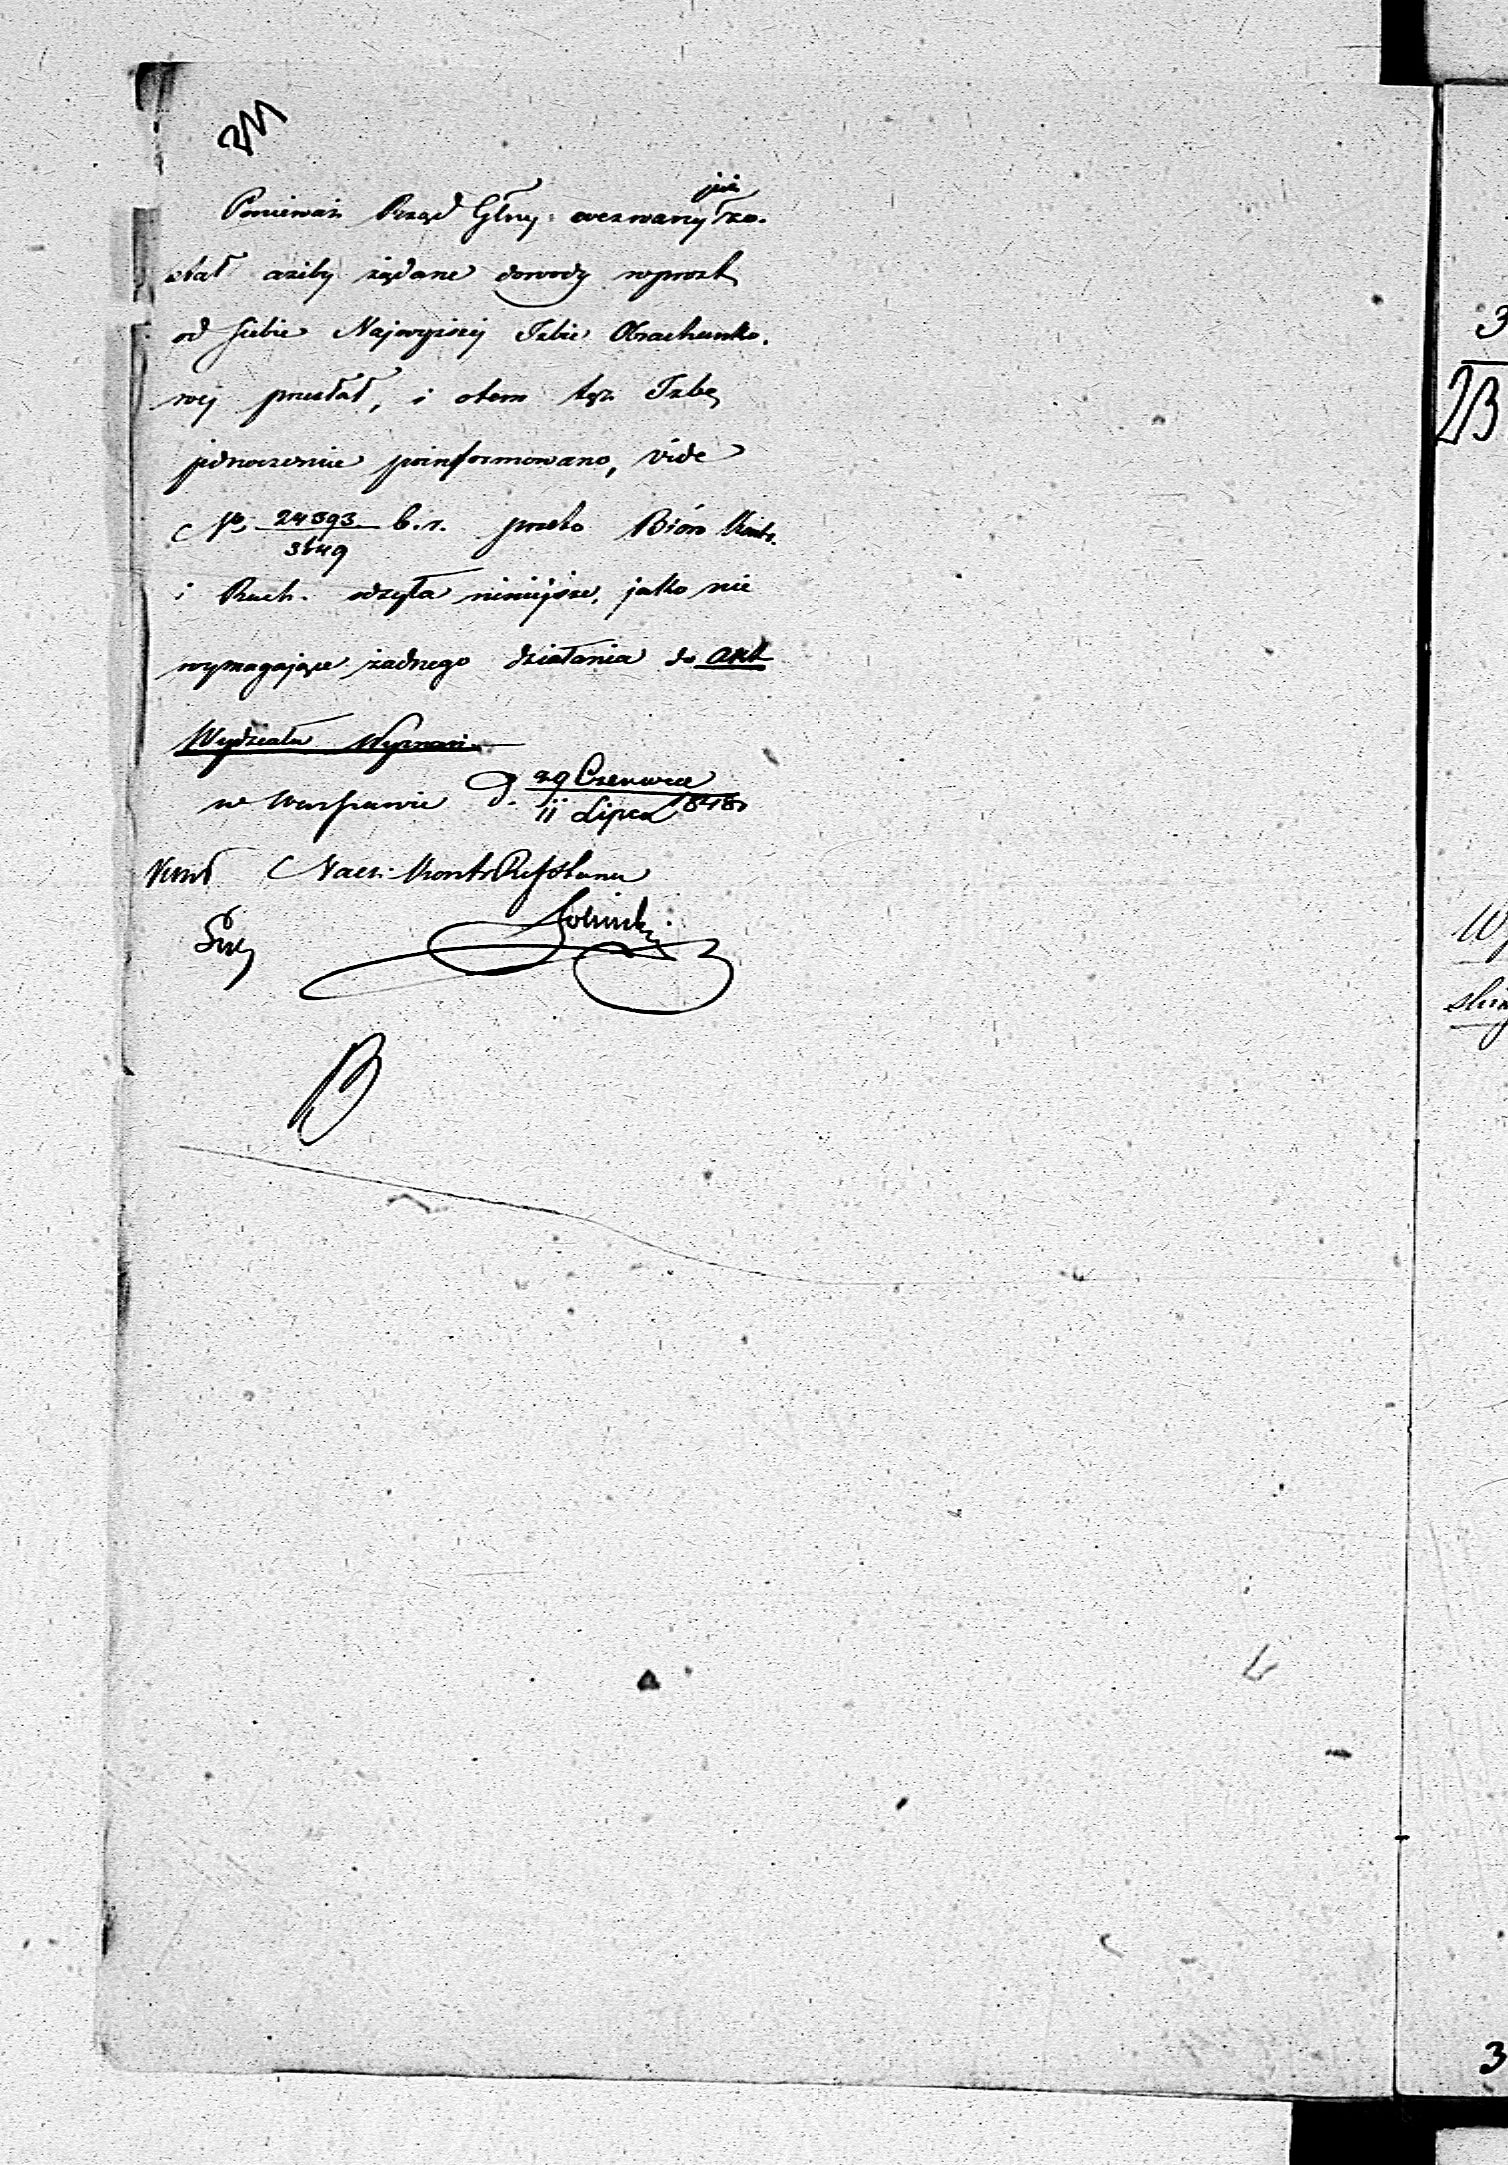 Ponieważ Rząd Głny: wezwany już zo-
stał ażeby żądane dowody wprost
od siebie Najwyższej Izbie Obrachunko-
wej przesłał, i otem tęż Izbę
jednocześnie poinformowano, vide
№ 24393/3649 b.r. przeto Bióro Kontr.
i Rach. odsyła niniejsze, jako nie
wymagające żadnego działania do akt
Wydziału Wyznań.
w Warszawie d. 29 Czerwca/11 Lipca 1848
Nacz: Kontr
B
3
2B
W
3